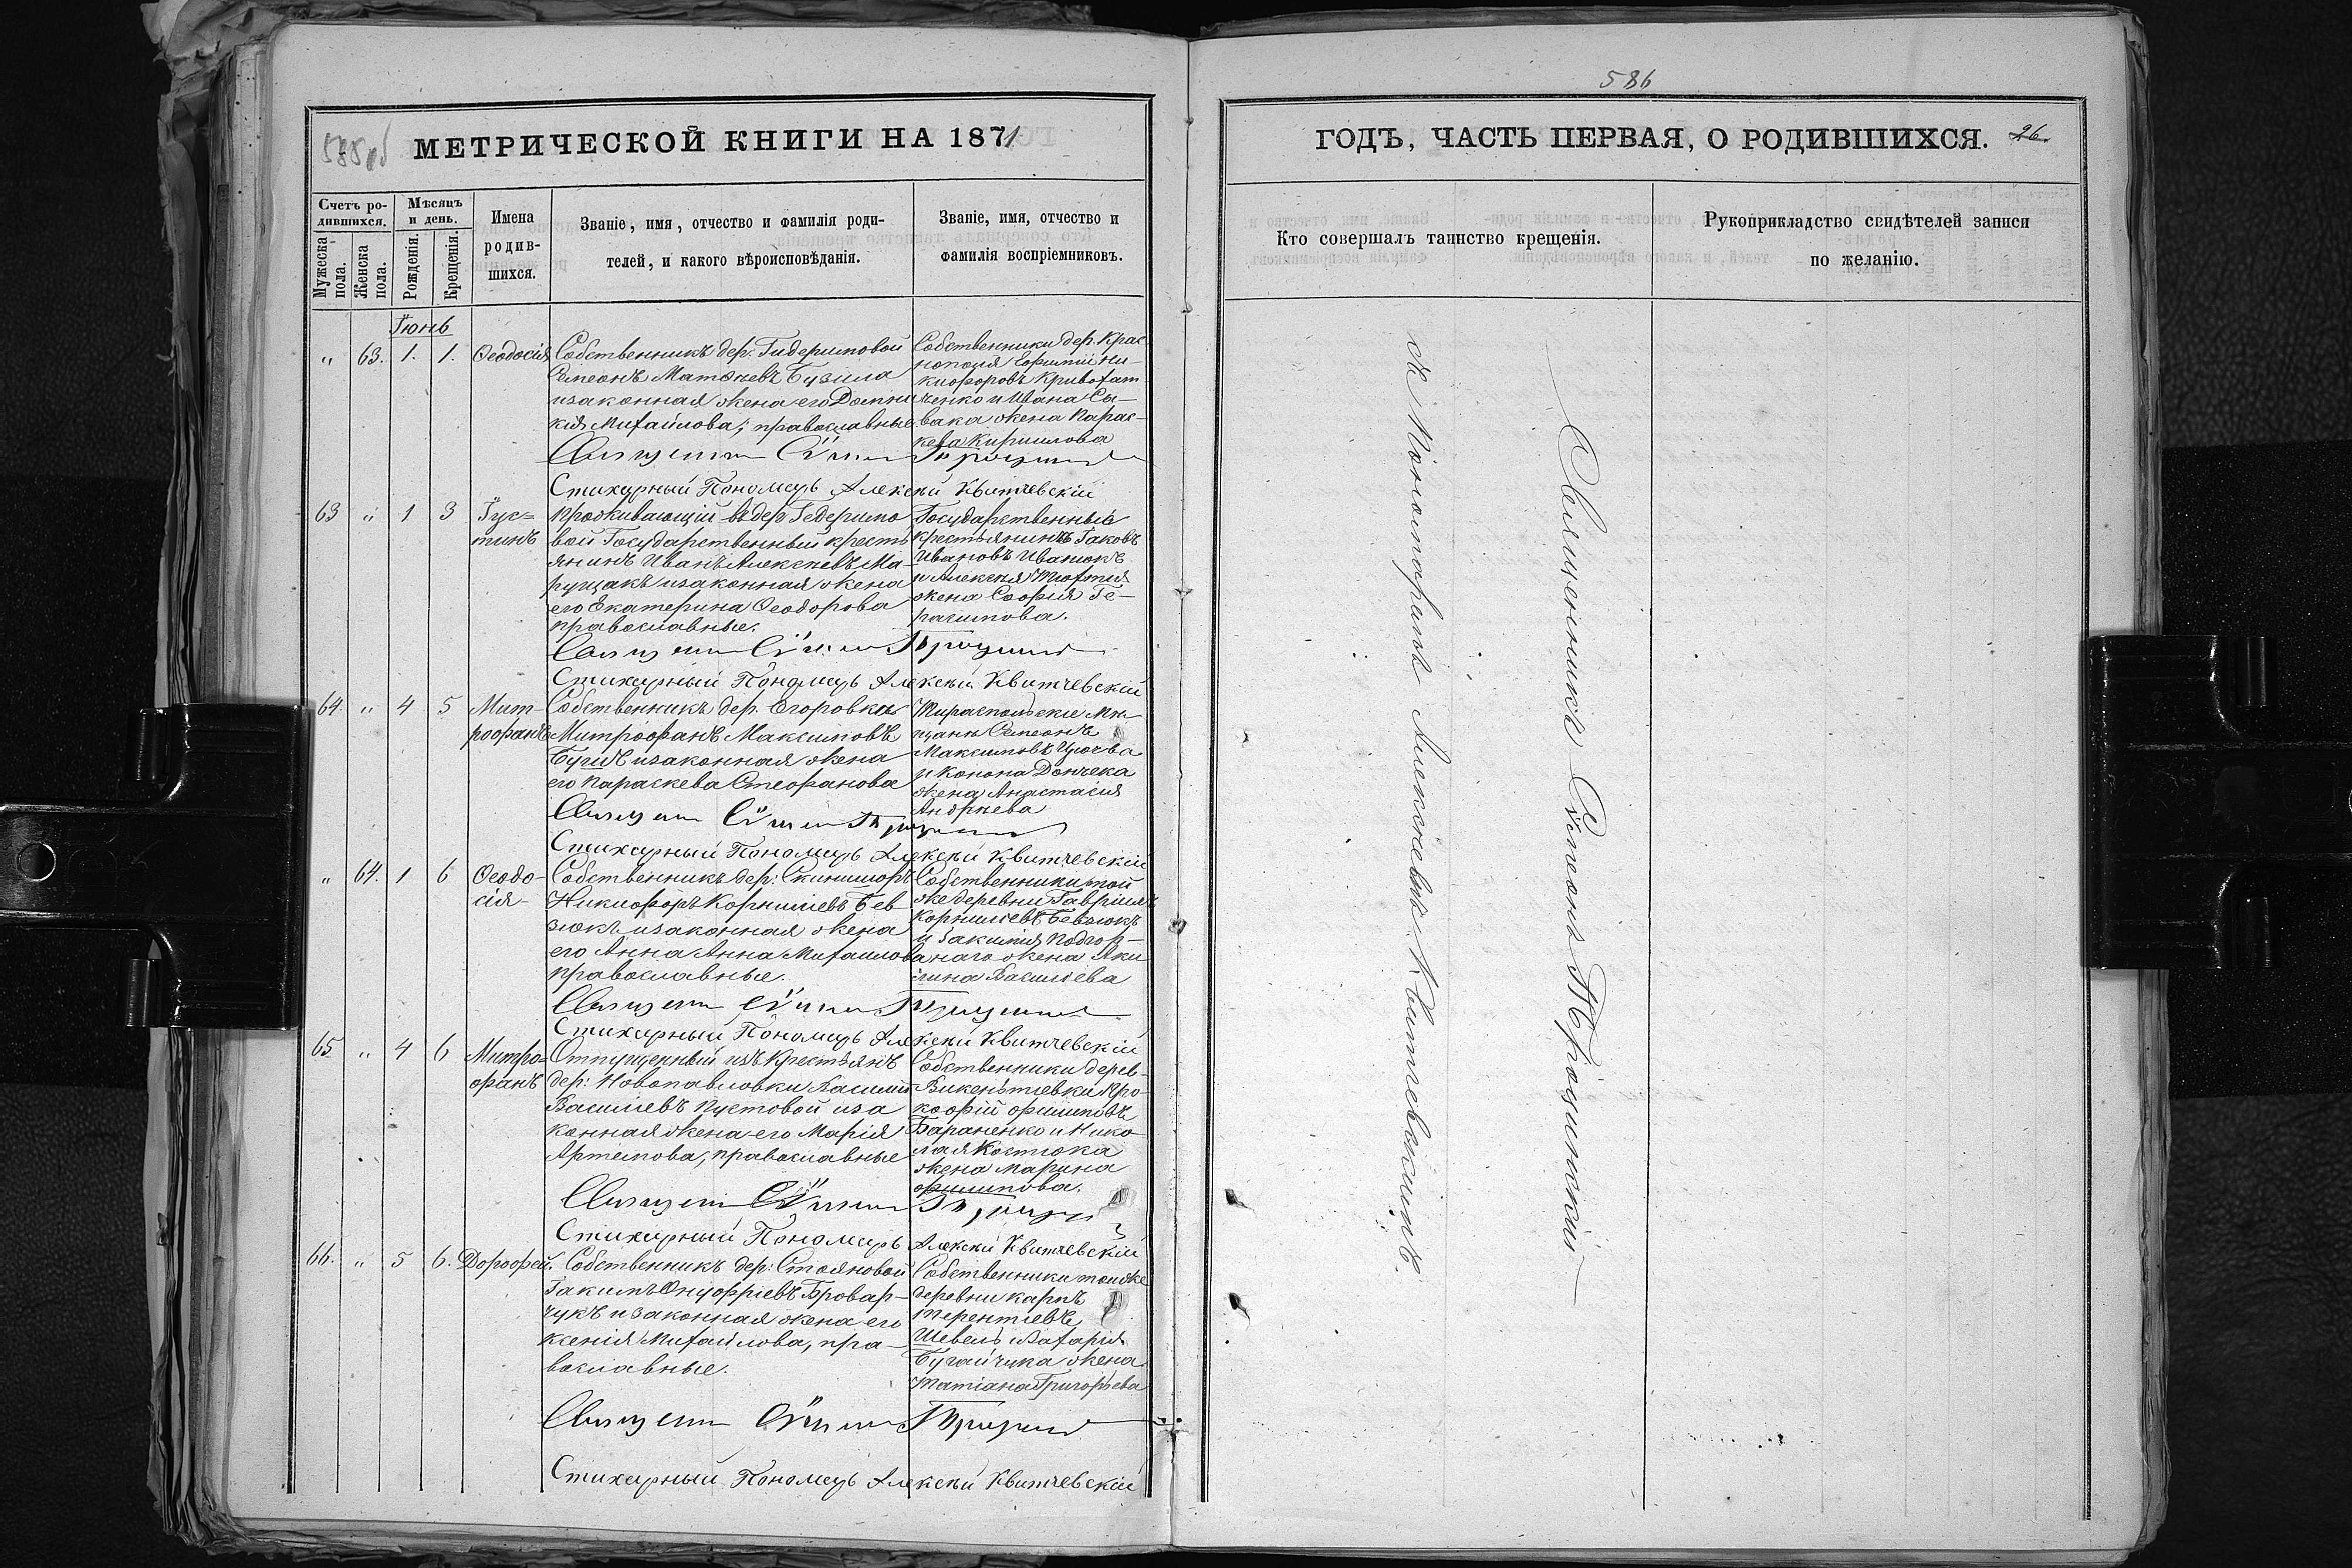 585 об
МЕТРИЧЕСКОЙ КНИГИ НА 1871
Счетъ родившихся.
Мужеска пола.
Женска пола.
Мѣсяцъ и день.
Рожденія.
Крещенія.
Имена родившихся.
Званіе, имя, отчество и фамилія роди-
телей, и какого вѣроисповѣданія.
Званіе, имя, отчество и
фамилія воспріемниковъ.
Іюнь
„ 63. 1. 1. Ѳеодосія
Собственникъ дер. Гидеримовой
Симеонъ Матѳѣевъ Бузила
и законная жена его Домни
кія Михайлова; православные
Собственники дер. Крас
нополя Ефимій Ни-
кифоровъ Кривохат
ченко и Ивана Сы-
вака жена Парас-
кева Кириллова
Священникъ Сѵмеонъ Троицкій
Стихарный Пономарь Алексѣй Квитчевскій
63 „ 1 3 Іус=
тинъ
Проживающій въ дер Гедеримо
вой Государственный кресть
янинъ Иванъ Алексѣевъ Ма-
рущакъ и законная жена
его Екатерина Ѳеодорова
православные.
Государственный
крестьянинъ Іаковъ
Ивановъ Иванюкъ
и Алексѣя Тюхтія
жена Софія Ге-
расимова.
Священникъ Сѵмеонъ Троицкій
Стихарный Пономарь Алексѣй Квитчевскій
64. „ 4 5 Мит-
рофанъ
Собственникъ дер. Егоровки
Митрофанъ Максимовъ
и законная жена
его Параскева Стефанова
Тираспольскіе Мѣ
щане Симеонъ
Максимовъ
и Конона Дончека
жена Анастасія
Андреева
Священникъ Сѵмеонъ Троицкій
Стихарный Пономарь Алексѣй Квитчевскій
„ 64. 1 6 Ѳеодо-
сія
Собственникъ дер:
Никифоръ Корниліевъ Бев-
зюкъ и законная жена
его Анна Анна Михаилова
православные.
Собственники той
же деревни Гавріилъ
Корниліевъ Бевзюкъ
и Іакима Подгор-
наго жена Аки
лина Василіева
Священникъ Сѵмеонъ Троицкій
Стихарный Пономарь Алексѣй Квитчевскій
65 „ 4 6 Митро=
фанъ
Отпущенный изъ Крестьянъ
дер: Новопавловки Василій
Василіевъ Пустовой и за
конная жена его Марія
Артемова, православные
Собственники дерев-
Викентіевки Про-
кофій Филиповъ
Бараненко и Нико
лая Костюка
жена Марина
Филипова.
Священникъ Сѵмеонъ Троицкій
Стихарный Пономарь Алексѣй Квитчевскій
66. „ 5 6. Дорофей.
Собственникъ дер: Стояновой
Іакимъ Онуфріевъ Бровар-
чукъ и законная жена его
Ксенія Михайлова, пра-
вославные.
Собственники той же
деревни Карпъ
Терентіевъ
Шевель и Захарія
Бугайчика жена
Татіана Григорьева
Священникъ Сѵмеонъ Троицкій
Стихарный Пономарь Алексѣй Квитчевскій
586
ГОДЪ, ЧАСТЬ ПЕРВАЯ, О РОДИВШИХСЯ. 26.
Кто совершалъ таинство крещенія.
Рукоприкладство свидѣтелей записи
по желанію.
Священникъ Сѵмеонъ Троицкій
съ Пономаремъ Алексѣевымъ Квитчевскимъ.